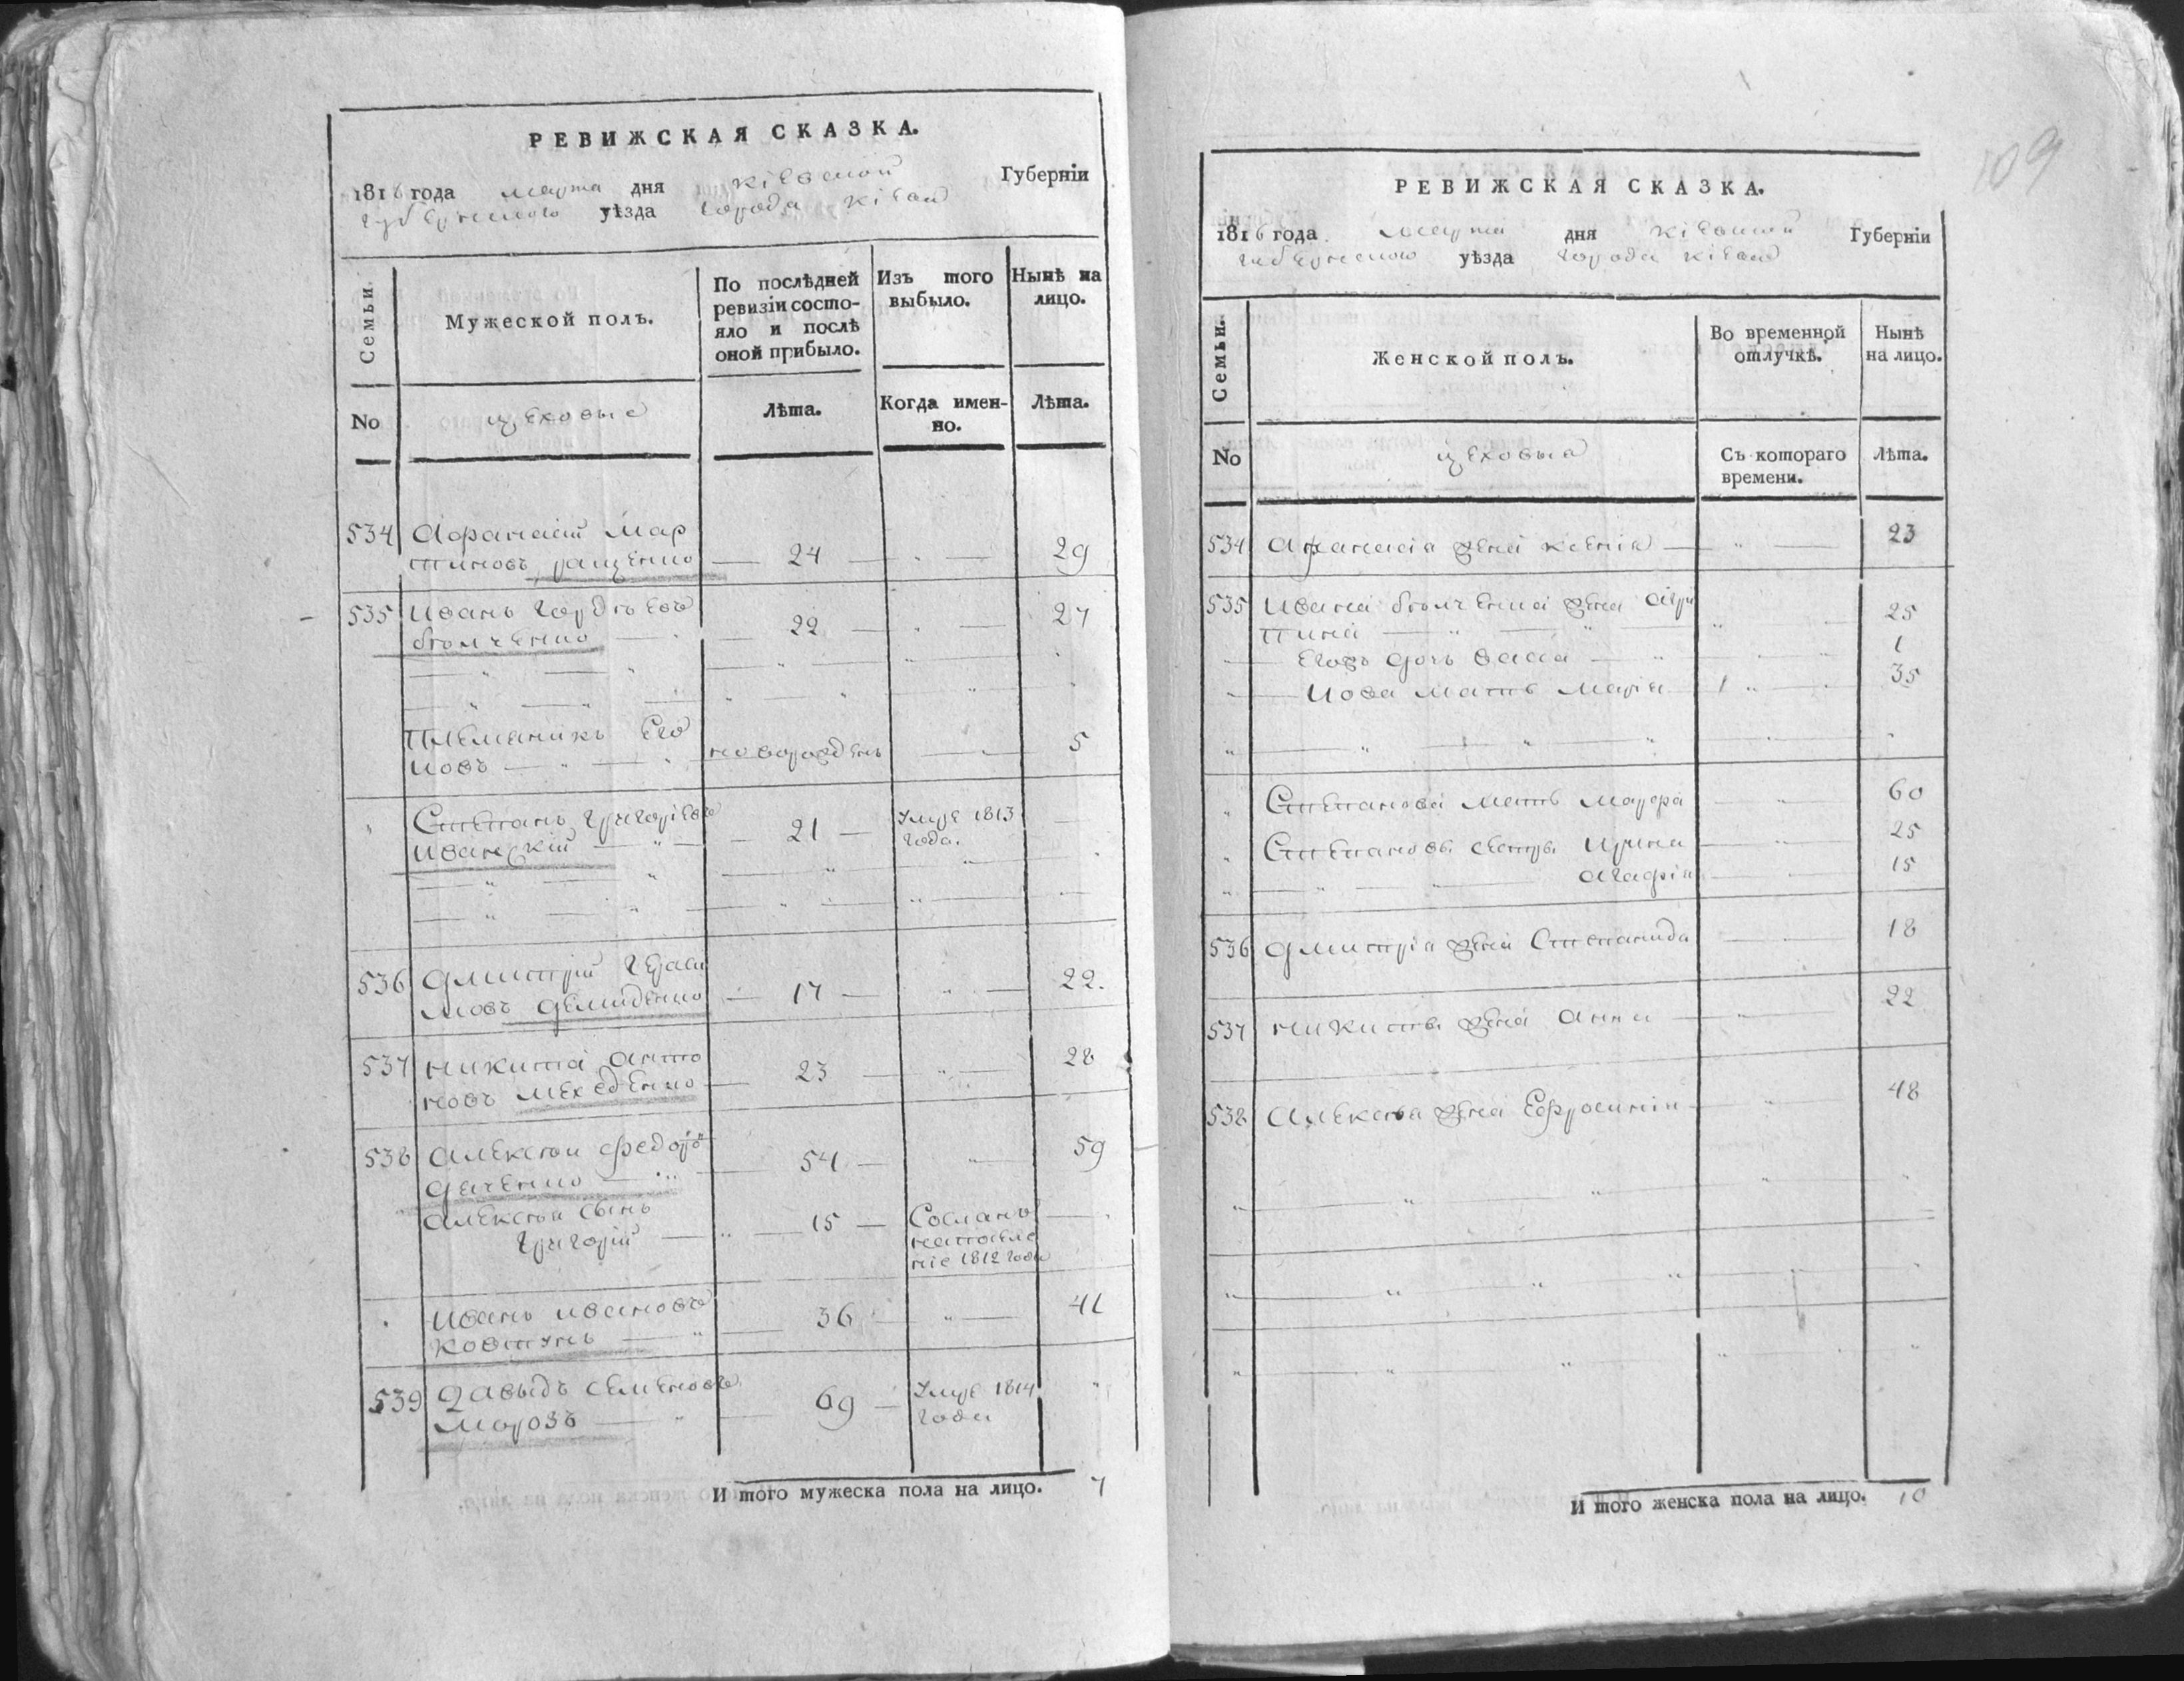 РЕВИЖСКАЯ СКАЗКА.
1816 года марта дня Кіевской Губерніи
губернскаго уѣзда города Кіева
Семьи.
Мужеской полъ.
По послѣдней
ревизіи состо-
яло и послѣ
оной прибыло.
Изъ того
выбыло.
Нынѣ на
лицо.
No
цеховые
Лѣта.
Когда имен-
но.
Лѣта.
534 Афанасій Мар
тиновъ ращенко — 24 — " — 29
535 Иванъ Гордѣевъ
22 — " — 27
Племаникъ Его
Иовъ — " — " новорожденъ — " 5
" Степанъ Григоріевъ
Иванскій — " — 21 — Умре 1813
года.
536 Дмитрій Гераси
мовъ Демиденко — 17 — " — 22.
537 Никита Анто
новъ Мехеденко — 23 — " — 28
538 Алексѣй Федоро
Дяченко — 54 — " 59
Алексѣя сынъ
Григорій — " — 15 — Сосланъ
на поселе
ніе 1812 года
Иванъ Ивановъ
Ковтунъ — " — 36 " — 41
539 Давыдъ Семеновъ
Морозъ — " — 69 — Умре 1814
года
И того мужеска пола на лицо. 7
109
РЕВИЖСКАЯ СКАЗКА.
1816 года. марта дня Кіевской Губерніи
губернскаго уѣзда города Кіева
Семьи.
Женской полъ.
Во временной
отлучкѣ.
Нынѣ
на лицо.
No
цеховые
Съ котораго
времени.
Лѣта.
534 Афанасія жена Ксенія — " — 23
535 Ивана жена Агри
пина — " — " — " 25
Его дочь Васса — " 1
Иова мать Марія " 35
" Степанова мать Мавра " 60
" Степановы сестры Ирина " 25
" " Агафія 15
536 Дмитрія жена Степанида — 18
537 Никиты жена Анна — " 22
538 Алексѣя жена Ефросинія " 48
И того женска пола на лицо. 10